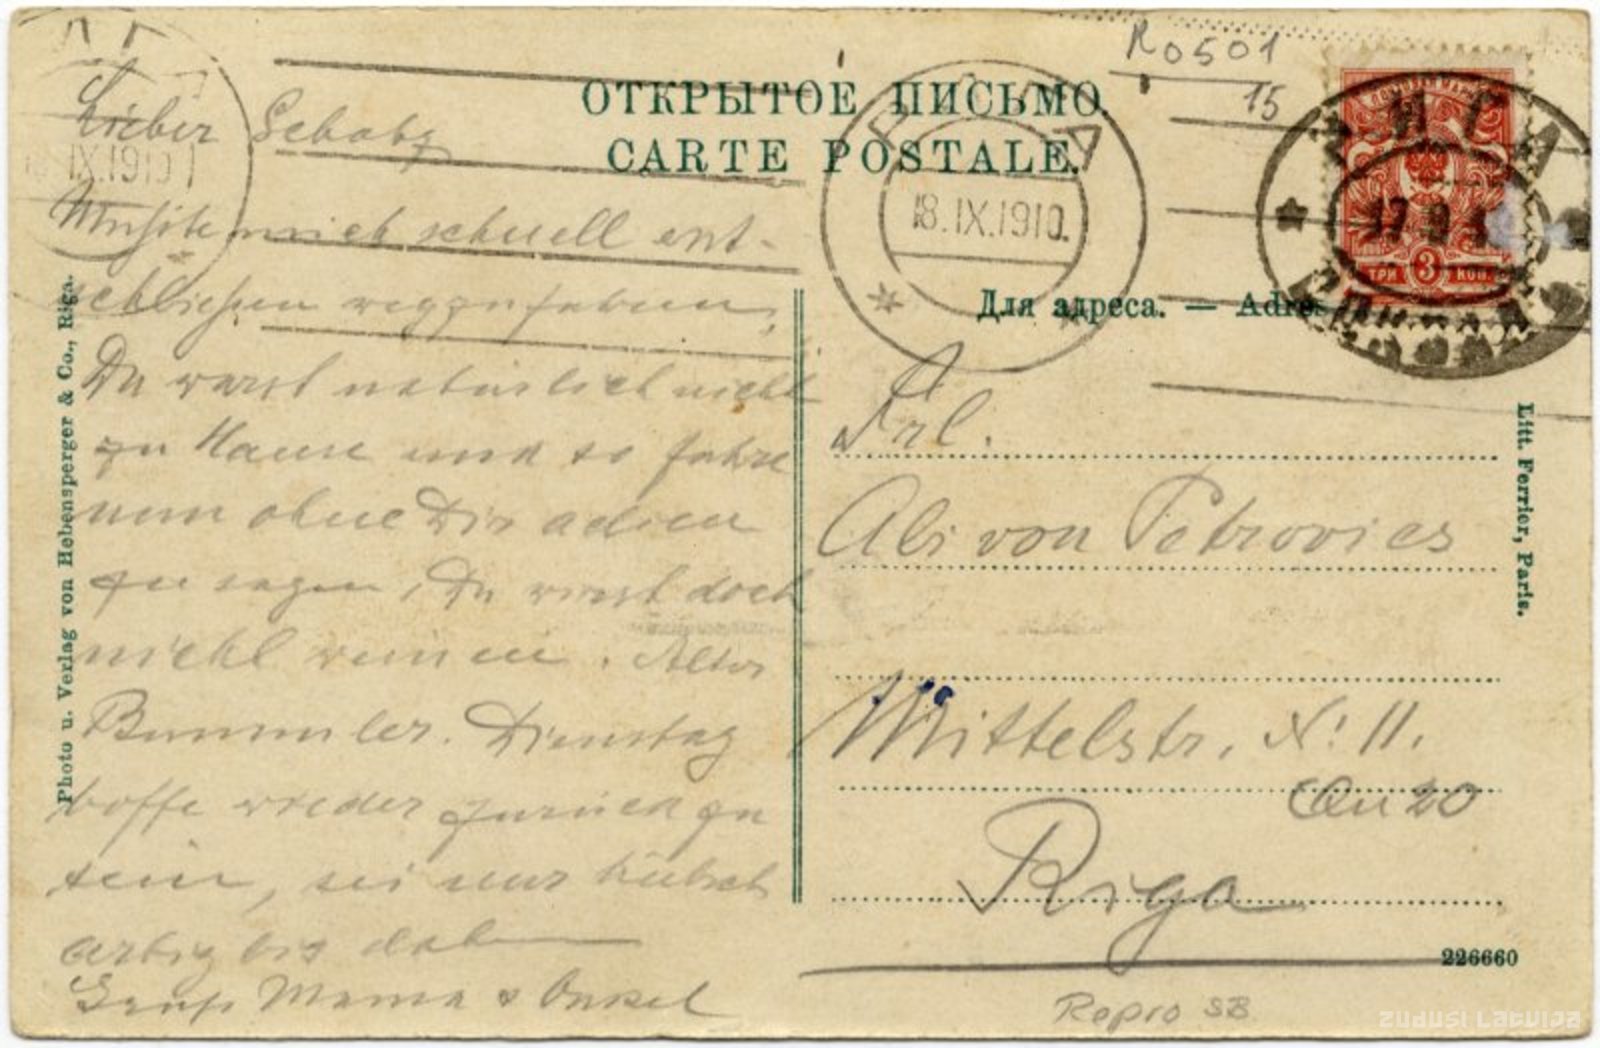 ОТКРЫТОЕ ПИСЬМО.
CARTE POSTALE.
R 0501
15
РИГА
18.IX.1910.
IX.1910
РИГА
17 9
ТРИ 3 КОП.
Для адреса. — Adres
Lieber Schatz
Musste mich schnell ent-
schließen wegzufahren,
Du warst natürlich nicht
zu Hause und so fahre
nun ohne Dir adieu
zu sagen, Du wirst doch
nicht weinen. Alter
Bummler. Dienstag
hoffe wieder zurück zu
sein, sei nur hübsch
artig bis dahin
Gruß Mama & Onkel
Frl.
Abi von Petrovics
Mittelstr. N: 11.
Qu 20
Riga
226660
Repro SB
Photo u. Verlag von Hebensperger & Co., Riga.
Litt. Ferrier, Paris.
zudusi latvija